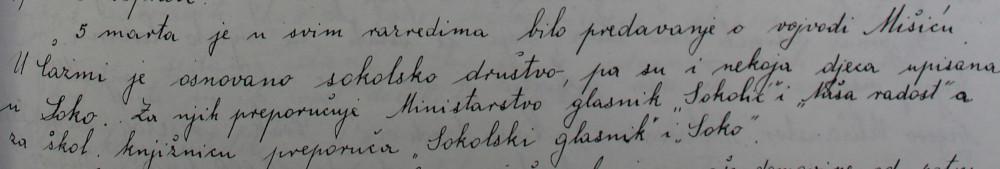 5 marta je u svim razredima bilo predavanje o vojvodi Mišiću.
U Čazmi je osnovano sokolsko društvo, pa su i nekoja djeca upisana
u Soko. Za njih preporučuje Ministarstvo glasnik „Sokolić“ i „Naša radost“ a
za škol. knjižnicu preporuča „Sokolski glasnik“ i „Soko“.